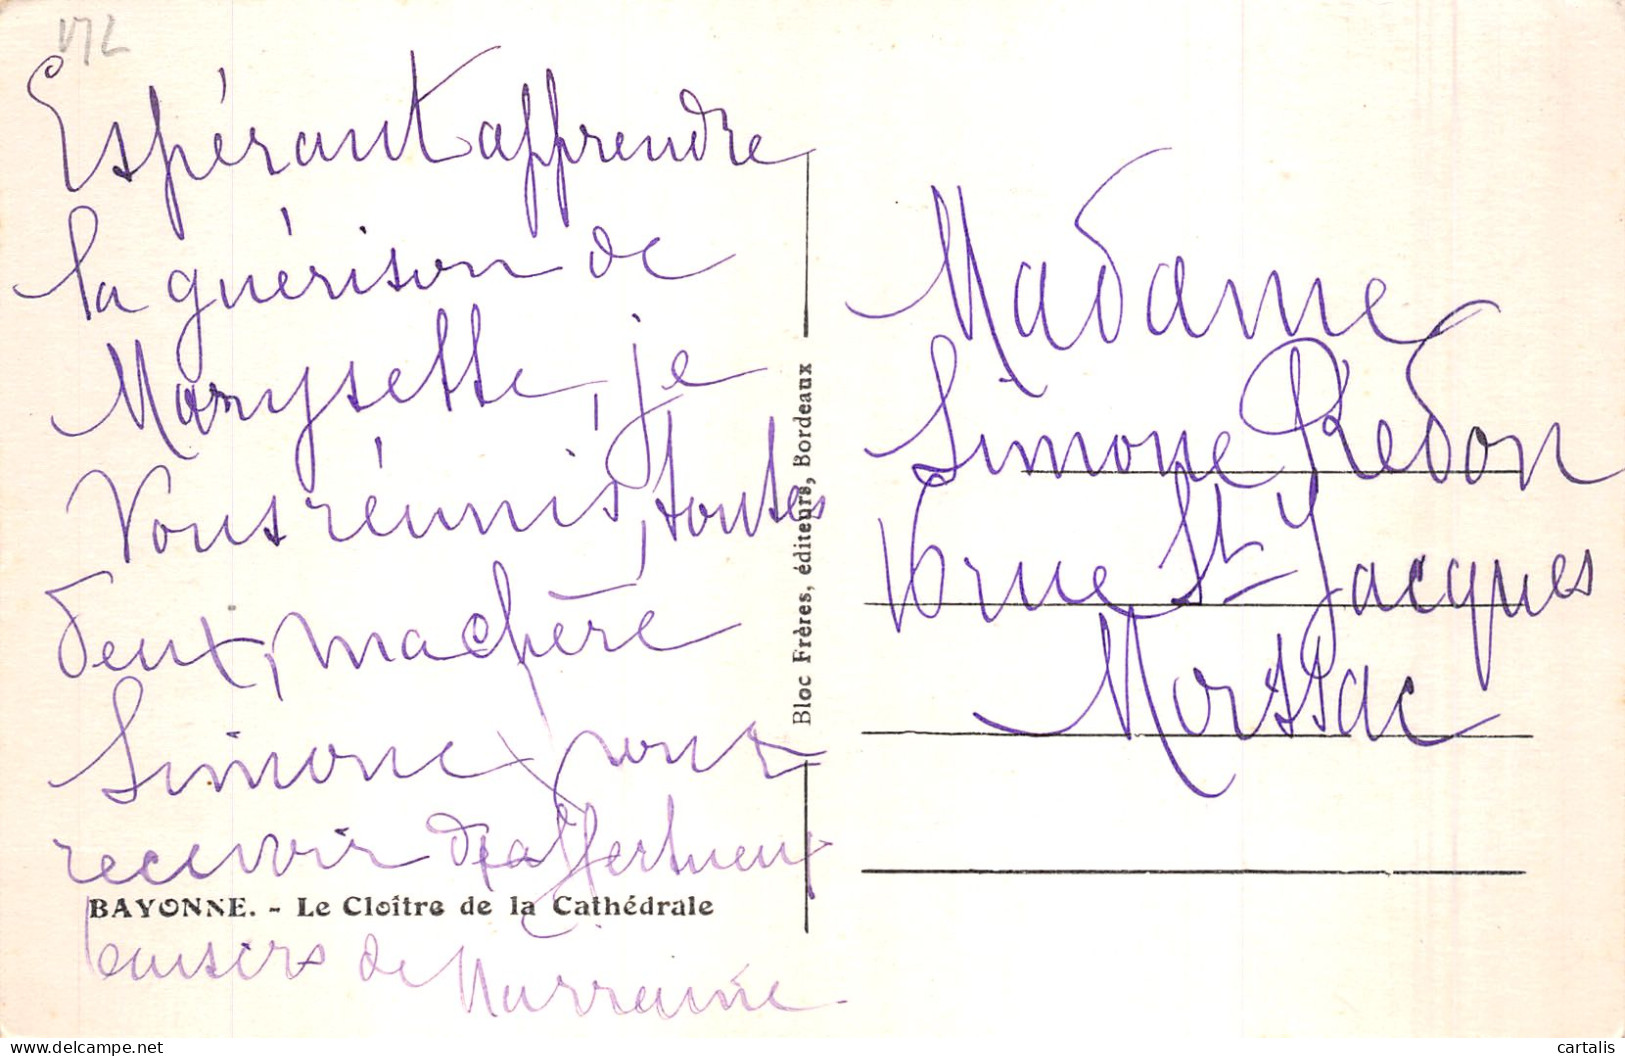 Espérant apprendre
la guérison de
Marysette, je
vous réunis, toutes
deux, ma chère
Simone, pour
recevoir d'affectueux
BAYONNE. - Le Cloître de la Cathédrale
baisers de Marraine
Bloc Frères, éditeurs, Bordeaux
Madame
Simone Redon
rue St Jacques
cartalis